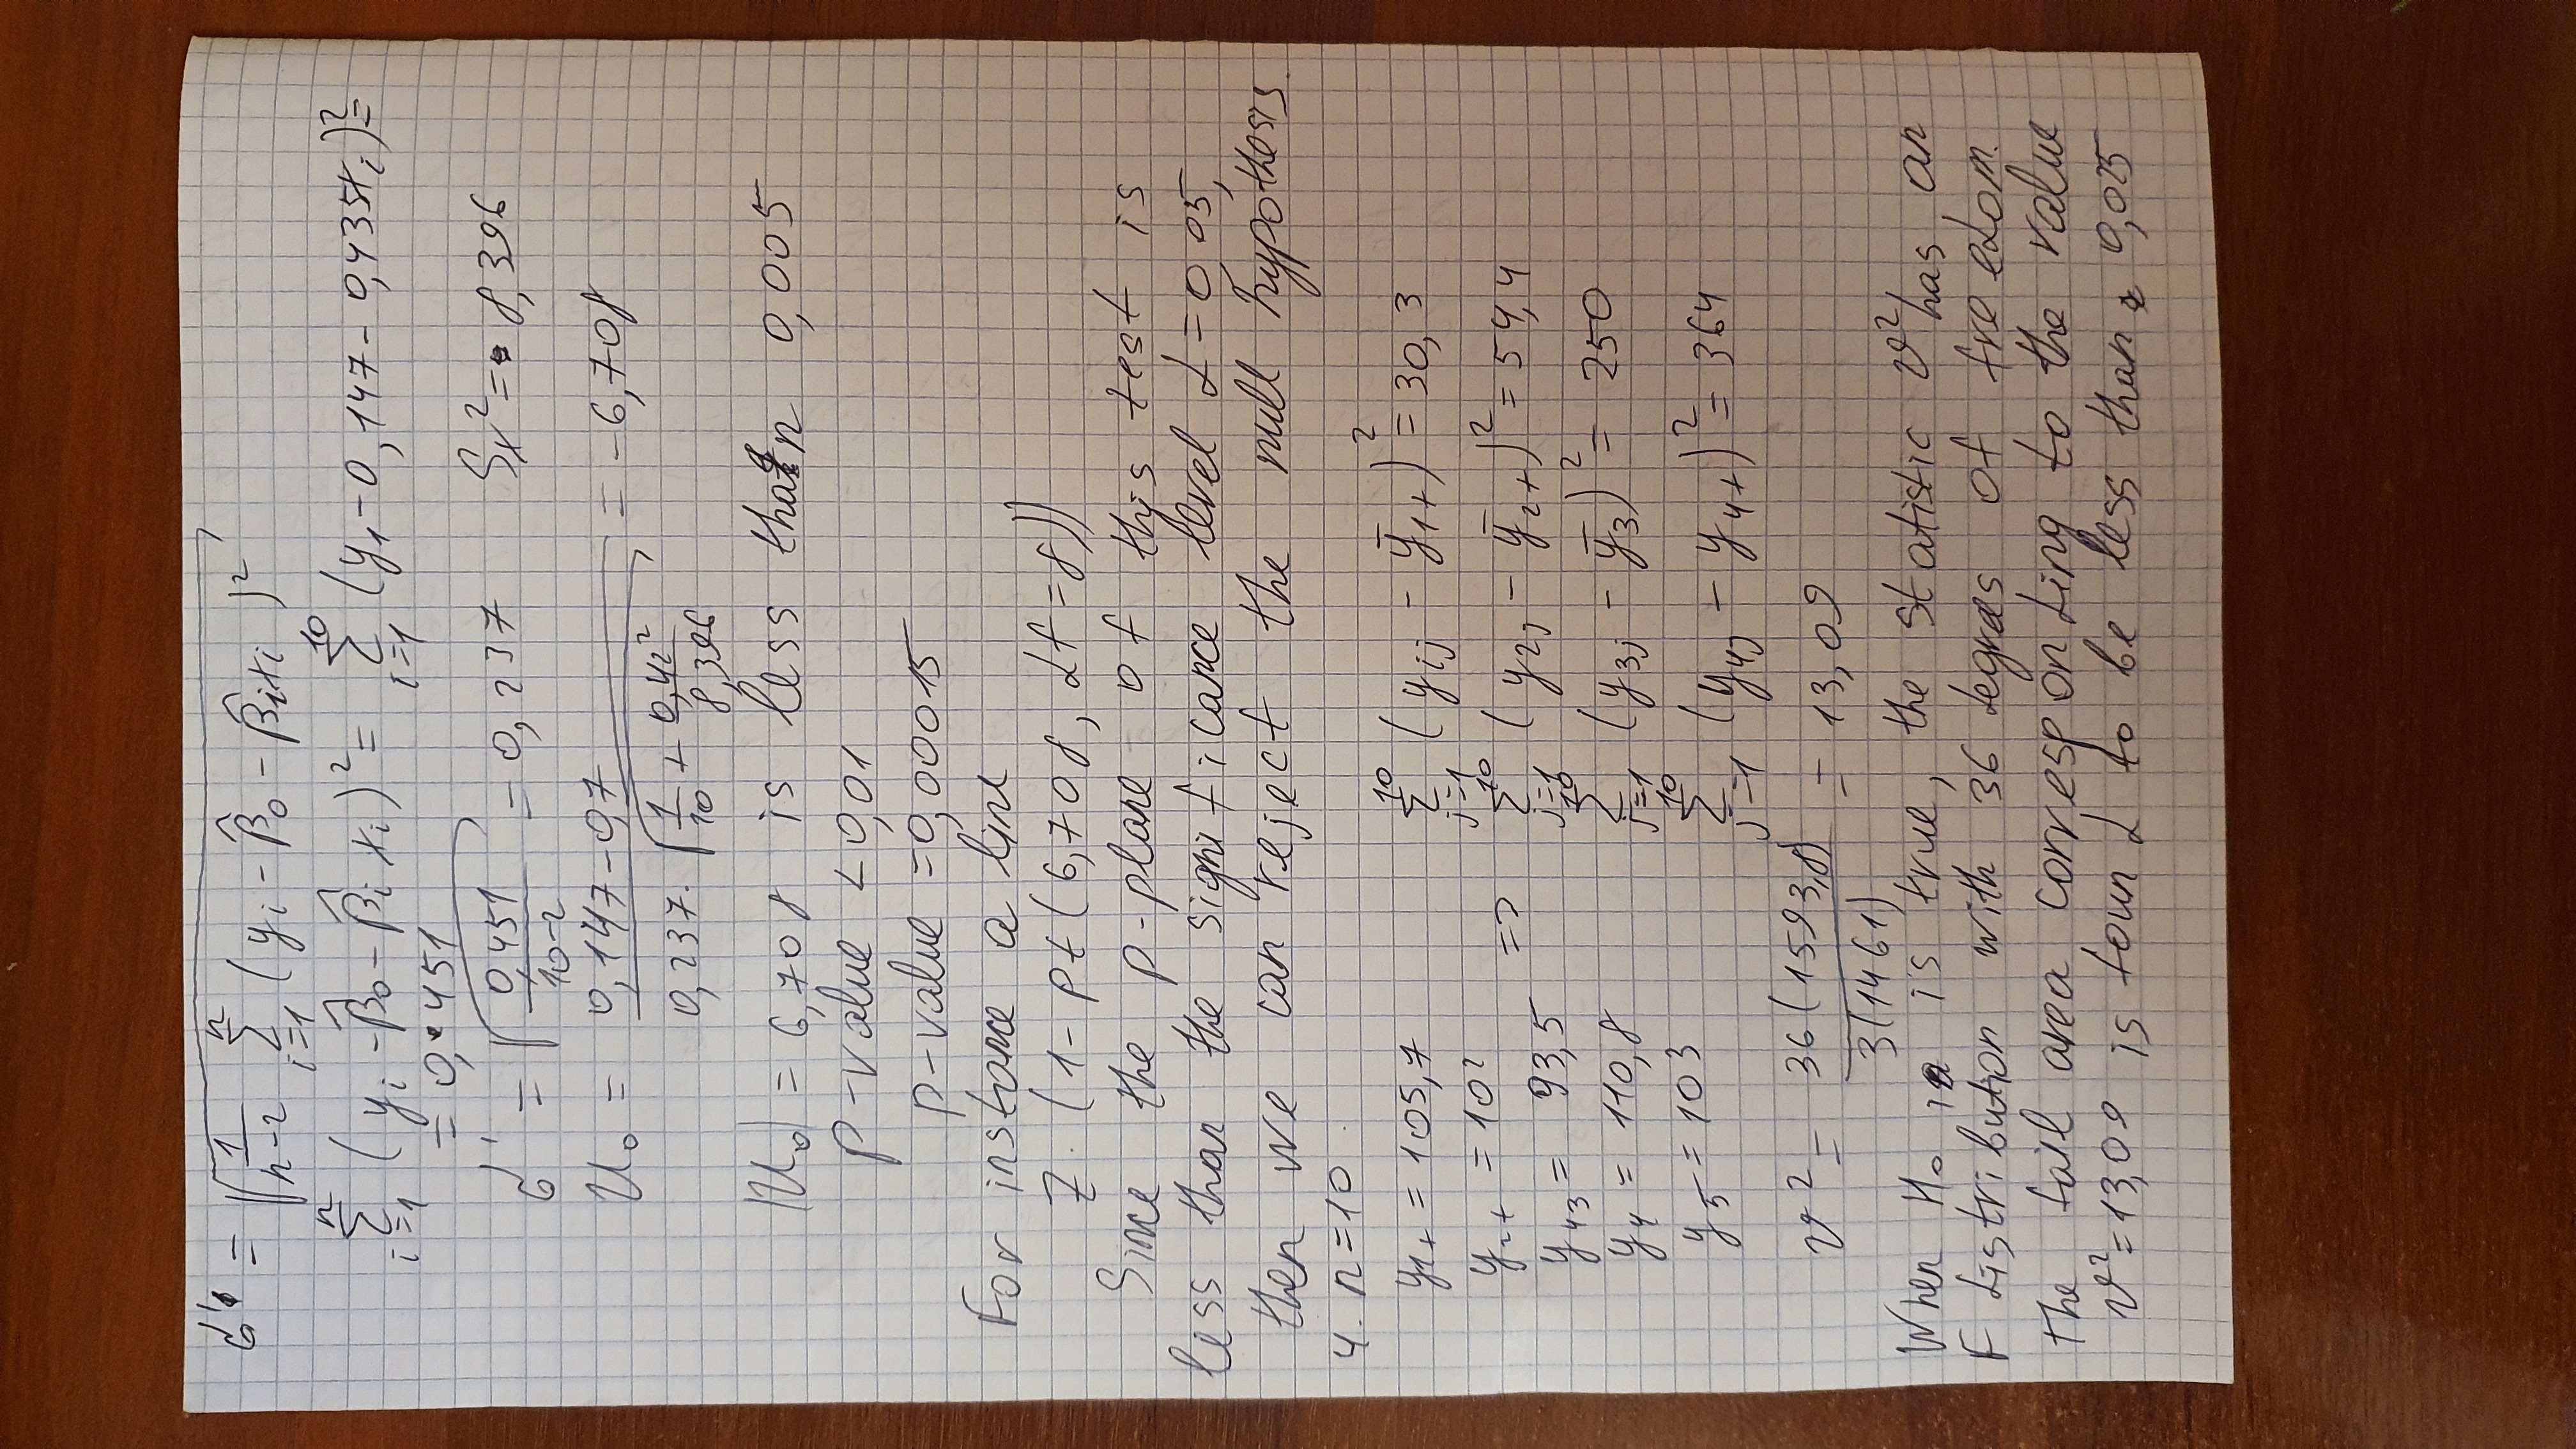 σ' = √(1/(n-2) Σ_{i=1}^{n} (y_i - β̂_0 - β̂_i x_i)²
Σ_{i=1}^{n} (y_i - β̂_0 - β̂_i x_i)² = Σ_{i=1}^{10} (y_1 - 0,147 - 0,435x_i)² =
= 0,451
σ' = √(0,451/(10-2)) = 0,237 Sx² = 8,396
U_0 = (0,147-0,7)/(0,237·√(1/10 + 0,42²/8,396)) = -6,708
|U_0| = 6,708 is less than 0,005
p-value < 0,01
p-value = 0,00015
For instance a line
2·(1-pt(6,708, df=8))
Since the p-plane of this test is
less than the significance level α=0,05,
then we can reject the null hypothesis.
4. n=10
y_{1+} = 105,7 Σ_{j=1}^{10} (y_{ij} - ȳ_{1+})² = 30,3
y_{2+} = 102 => Σ_{j=1}^{10} (y_{2j} - ȳ_{2+})² = 54,4
y_{43} = 93,5
y_4 = 110,8 Σ_{j=1}^{10} (y_{3j} - ȳ_3)² = 250
y_5 = 103 Σ_{j=1}^{10} (y_{4j} - y_{4+})² = 364
v² = 36(1593,8)/3(1461) = 13,09
When H_0 is true, the statistic v² has an
F distribution with 36 degrees of freedom.
the tail area corresponding to the value
v²=13,09 is found to be less than 0,025